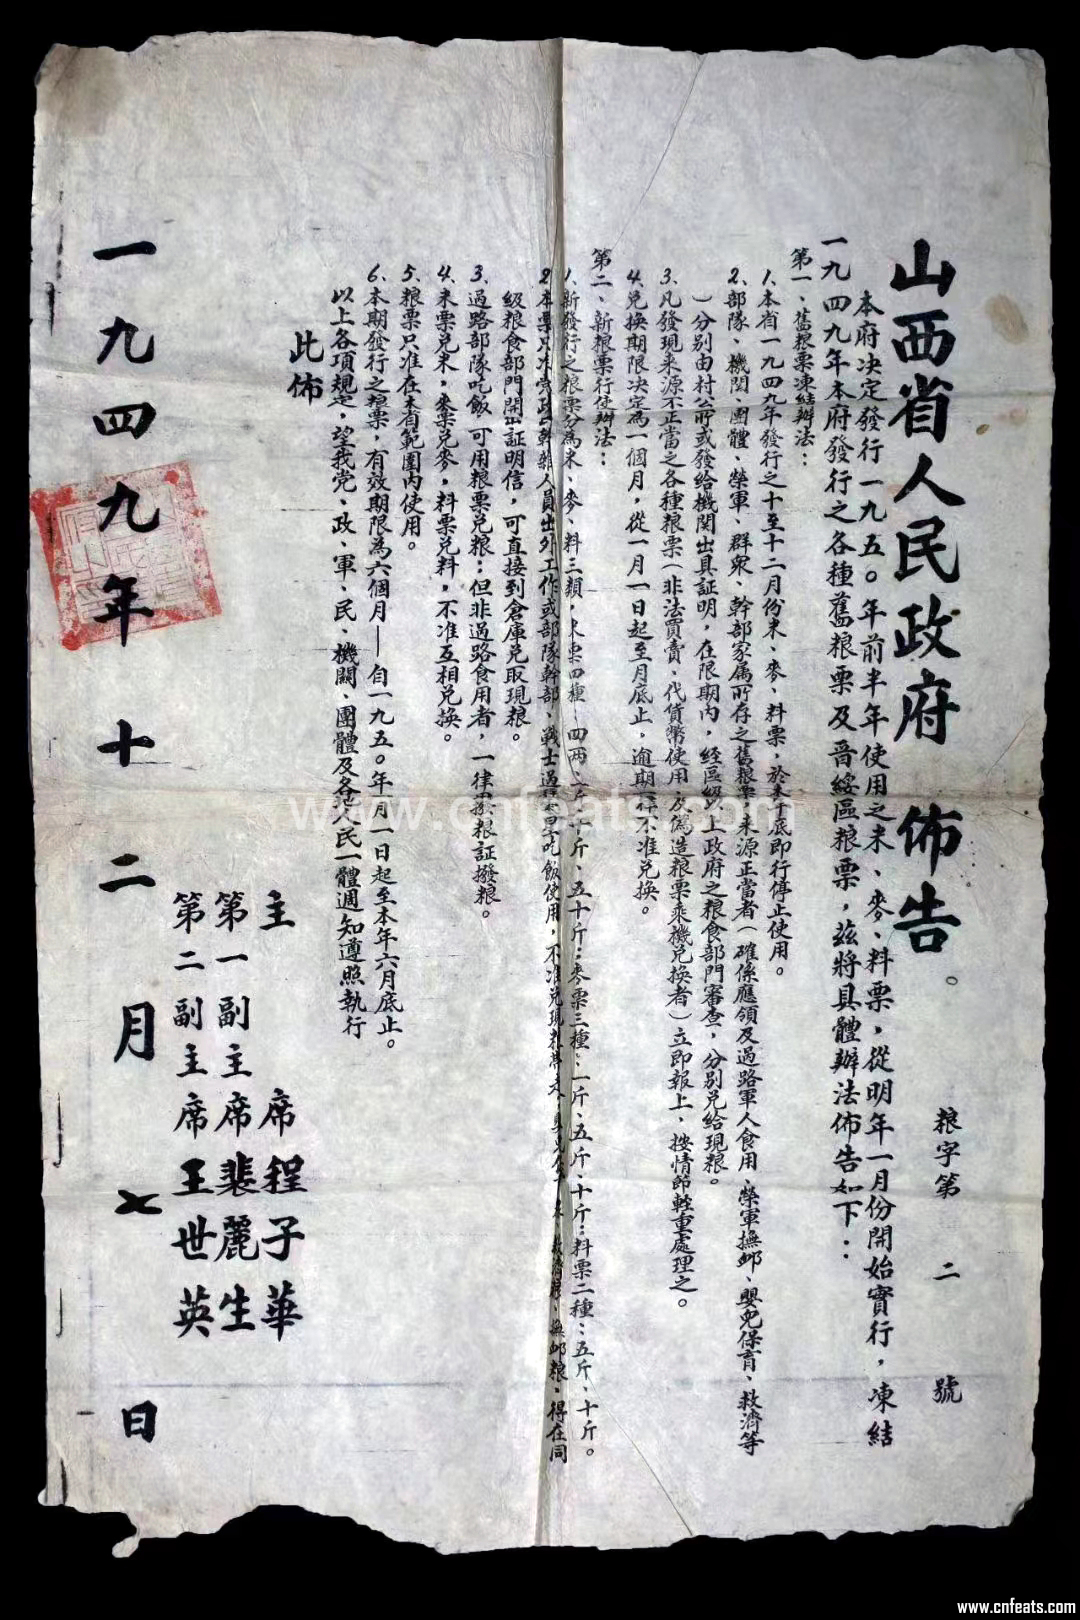 山西省人民政府佈告。
粮字第二號
本府决定發行一九五〇年前半年使用之米、麥、料票，從明年一月份開始實行，凍結
一九四九年本府發行之各種舊粮票及晉綏區粮票，茲將具體辦法佈告如下：
第一、舊粮票凍結辦法：
1.本省一九四九年發行之十至十二月份米、麥、料票，於本年底即行停止使用。
2.部隊、機関、團體、榮軍、群衆、幹部家属所存之舊粮票，來源正當者（確係應領及過路軍人食用、榮軍撫卹、嬰兒保育、救濟等
）分别由村公所或發給機関出具証明，在限期内，經區級以上政府之粮食部門審查，分别兑給現粮。
3.凡發現来源不正當之各種粮票（非法買賣、代貨幣使用，及偽造粮票乘機兑換者）立即報上，按情節輕重處理之。
4.兑換期限决定為一個月，從一月一日起至月底止，逾期作不准兑換。
第二、新粮票行使辦法：
1.新發行之粮票分為米、麥、料三類，米票四種：四两、一斤、十斤、五十斤；麥票三種：一斤、五斤、十斤；料票二種：五斤、十斤。
2.本票只准党政幹雜人員出外工作或部隊幹部、戰士過吃飯使用，不准兑現粮撫卹粮，得在同
級粮食部門開出証明信，可直接到倉庫兑取現粮。
3.過路部隊吃飯，可用粮票兑粮；但非過路食用者，一律粮証撥粮。
4.米票兑米，麥票兑麥，料票兑料，不准互相兑換。
5.粮票只准在本省範圍内使用。
6.本期發行之粮票，有效期限為六個月——自一九五〇年一月一日起至本年六月底止。
以上各項規定，望我党、政、軍、民、機關、團體及各人民一體週知遵照執行
此佈
主席程子華
第一副主席裴麗生
第二副主席王世英
一九四九年十二月七日
www.cnfeats.com
www.cnfeats.com